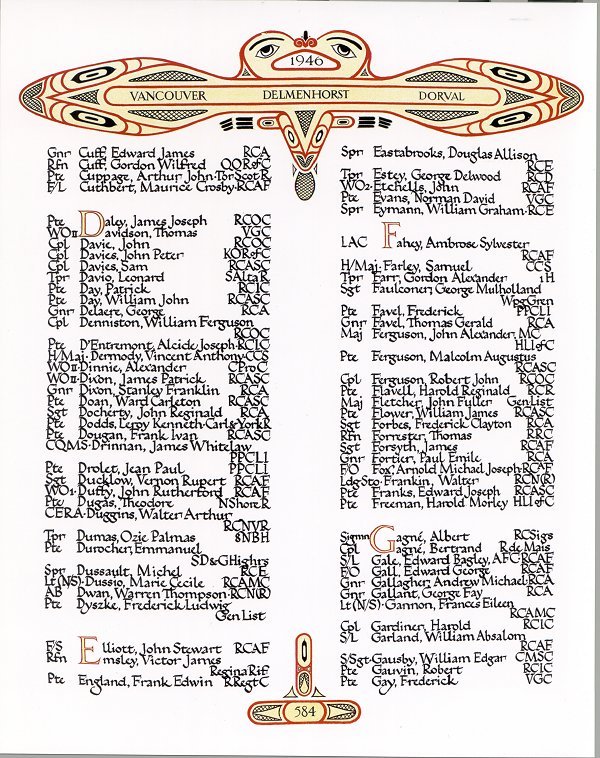 1946
VANCOUVER DELMENHORST DORVAL
Gnr Cuff, Edward James RCA
Rfn Cuff, Gordon Wilfred QOR of C
Pte Cuppage, Arthur John · Tor Scot R
F/L Cuthbert, Maurice Crosby · RCAF
Pte Daley, James Joseph RCOC
WO II Davidson, Thomas VGC
Cpl Davie, John RCOC
Cpl Davies, John Peter KOR of C
Cpl Davies, Sam RCASC
Tpr Davio, Leonard SAlta R
Pte Day, Patrick RCIC
Pte Day, William John RCASC
Gnr Delaere, George RCA
Cpl Denniston, William Ferguson
RCOC
Pte D'Entremont, Alcide Joseph · RCIC
H/Maj · Dermody, Vincent Anthony · CCS
WO II · Dinnie, Alexander CProC
WO II · Dixon, James Patrick RCASC
Gnr Dixon, Stanley Franklin RCA
Pte Doan, Ward Carleton RCASC
Sgt Docherty, John Reginald RCA
Pte Dodds, Leroy Kenneth · Carl & York R
Pte Dougan, Frank Ivan RCASC
CQMS · Drinnan, James Whitelaw
PPCLI
Pte Drolet, Jean Paul PPCLI
Sgt Ducklow, Vernon Rupert RCAF
WO I · Duffy, John Rutherford RCAF
Pte Dugas, Theodore N Shore R
CERA · Duggins, Walter Arthur
RCNVR
Tpr Dumas, Ozie Palmas 8NBH
Pte Durocher, Emmanuel
SD & G Highrs
Spr Dussault, Michel RCE
Lt (NS) · Dussio, Marie Cecile RCAMC
AB Dwan, Warren Thompson · RCN(R)
Pte Dyszke, Frederick Ludwig
Gen List
F/S Elliott, John Stewart RCAF
Rfn Emsley, Victor James
Regina Rif
Pte England, Frank Edwin R Regt C
Spr Eastabrooks, Douglas Allison
RCE
Tpr Estey, George Delwood RCD
WO2 · Etchells, John RCAF
Pte Evans, Norman David VGC
Spr Eymann, William Graham · RCE
LAC Fahey, Ambrose Sylvester
RCAF
H/Maj · Farley, Samuel CCS
Tpr Farr, Gordon Alexander 1H
Sgt Faulconer, George Mulholland
Wpg Gren
Pte Favel, Frederick PPCLI
Gnr Favel, Thomas Gerald RCA
Maj Ferguson, John Alexander · MC
HLI of C
Pte Ferguson, Malcolm Augustus
RCASC
Cpl Ferguson, Robert John RCOC
Pte Flavell, Harold Reginald RCR
Maj Fletcher, John Fuller Gen List
Pte Flower, William James RCASC
Sgt Forbes, Frederick Clayton RCA
Rfn Forrester, Thomas RRC
Sgt Forsyth, James RCAF
Gnr Fortier, Paul Emile RCA
F/O Fox, Arnold Michael Joseph · RCAF
Ldg Sto · Frankin, Walter RCN(R)
Pte Franks, Edward Joseph RCASC
Pte Freeman, Harold Morley HLI of C
Sigmn Gagné, Albert RCSigs
Cpl Gagné, Bertrand R de Mais
S/L Gale, Edward Bagley, AFC · RCAF
F/O Gall, Edward George RCAF
Gnr Gallagher, Andrew Michael · RCA
Gnr Gallant, George Fay RCA
Lt (N/S) · Gannon, Frances Eileen
RCAMC
Cpl Gardiner, Harold RCIC
S/L Garland, William Absalom
RCAF
S/Sgt · Gausby, William Edgar CMSC
Pte Gauvin, Robert RCIC
Pte Gay, Frederick VGC
584